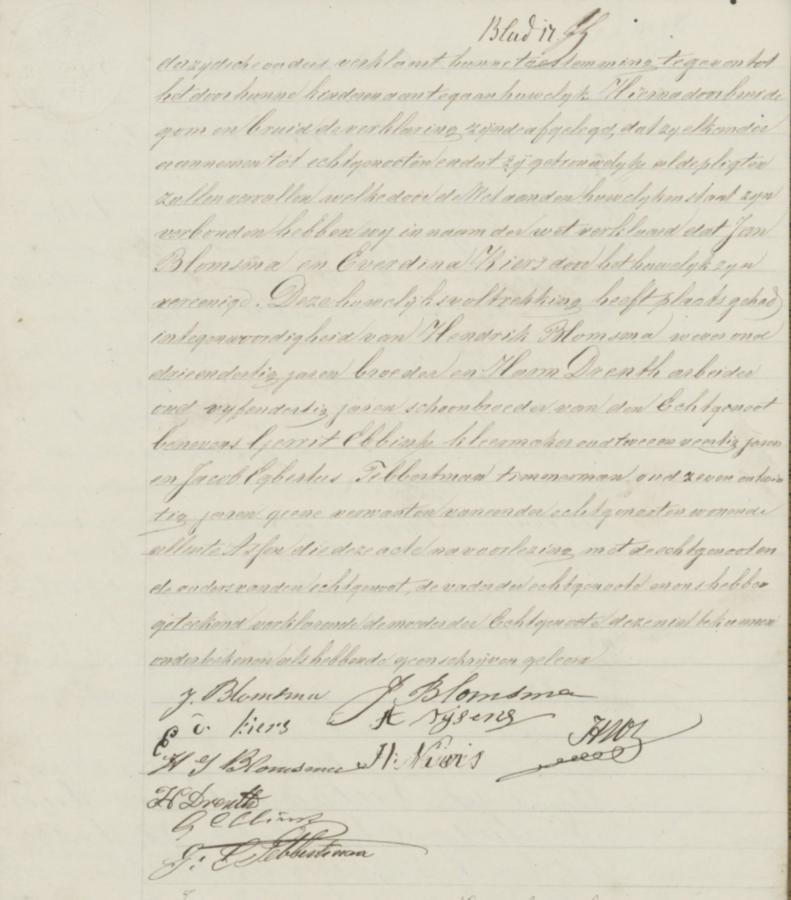 Blad 17
derzydsche ouders verklaart hunne toestemming te geven tot
het door hunne kinderen aantegaan huwelyk. Hierna door bruide
gom en bruid de verklaring zynde afgelegd, dat zy elkander
aannemen tot echtgenooten en dat zij getrouwelyk al de pligten
zullen vervullen welke door de Wet aan den huwelyken staat zyn
verbonden hebben wy in naam der wet verklaard dat Jan
Blomsma en Everdina Kiers door het huwelyk zyn
vereenigd. Deze huwelyksvoltrekking heeft plaats gehad
in tegenwoordigheid van Hendrik Blomsma wever oud
drieendertig jaren broeder en Harm Drenth arbeider
oud vyfendertig jaren schoonbroeder van den Echtgenoot
benevens Gerrit Ebbing kleermaker oud tweeenveertig jaren
en Jacob Egbertus Tebbertman timmerman oud zevenentwin
tig jaren geene verwanten van een der echtgenooten wonende
allen te Assen die deze acte na voorlezing, met de echtgenooten
de ouders van den echtgenoot, de vader der echtgenoote en ons hebben
geteekend verklarende de moeder der Echtgenoote deze niet te kunnen
onderteekenen als hebbende geen schryven geleerd
J. Blomsma J. Blomsma
E v. kiers
H J Blomsma
H Drenth
J: E Tebbertman